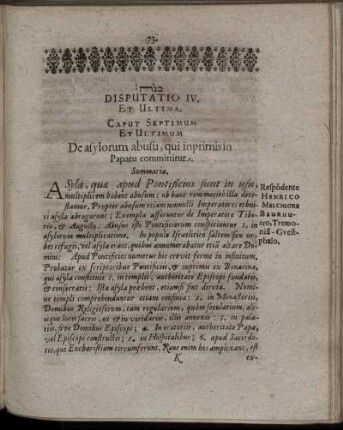 73.
DISPUTATIO IV.
ET ULTIMA.
CAPUT SEPTIMUM
ET ULTIMUM
De asylorum abusu, qui inprimis in
Papatu committitur.
Summaria.
ASyla, quæ apud Pontificios sunt in usu,
multiplicem habent abusum: ob hanc
stamur, Propter abusum etiam nonnulli Imperatores ethni-
ci asyla abrogarunt: Exempla afferuntur de Imperatore Tibe-
rio, & Augusto. Abusus isti Pontificiorum consistunt 1. in
asylorum multiplicatione, In populo Israëlitico saltem sex ur-
bes refugii, vel asyla erant, quibus annumerabatur etiā altare Do-
mini: Apud Pontificios numerus hic crevit ferme in infinitum,
Probatur ex scriptoribus Pontificiis, & inprimis ex Bonacina,
qui asyla constituit 1. in templis, authoritate Episcopi fundatis,
& consecratis: Ista asyla probent, etiamsi sint diruta. Nomi-
ne templi comprehenduntur etiam confinia: 2. in Monasteriis,
Domibus Religiosorum, tam regularium, quàm secularium, ali-
isque locis sacris, ut & in viridariis, illis annexis: 3. in pala-
tiis, sive Domibus Episcopi; 4. In oratoriis, authoritate Papæ,
vel Episcopi constructis; 5. in Hospitalibus; 6. apud Sacerdo-
tes, qui Eucharistiam circumferunt, Reus enim hos amplexans, est
K
ex-
Respōdente
HENRICO
MELCHIORE
BEURHU-
ro, Tremo-
niā-Guest-
phalo,